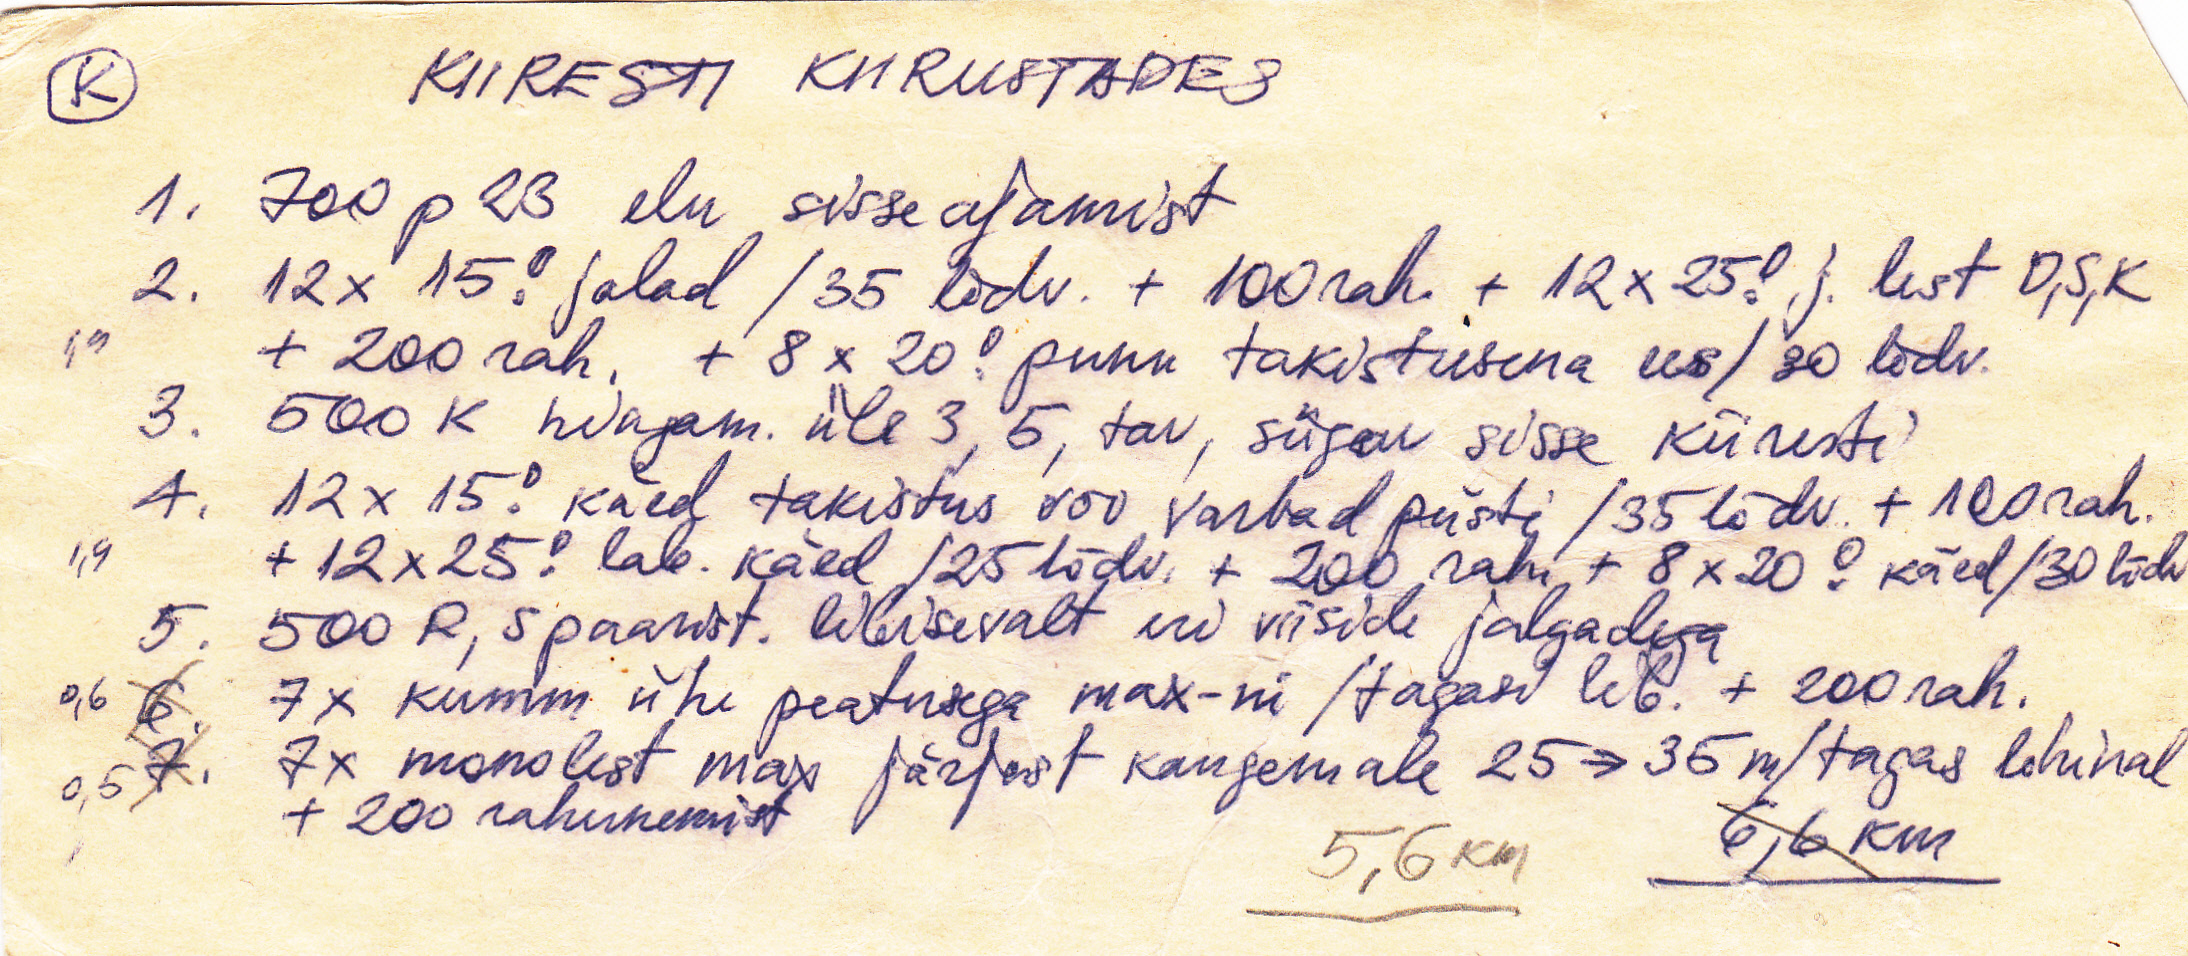 K KIIRESTI KIIRUSTADES
1. 700 p 23 elu sisseajamist
2. 12x 15! jalad /35 lõdv. + 100 rah. + 12 x 25! j. lest D,S,K
1,9 + 200 rah. + 8 x 20! punn takistusena ees/30 lõdv.
3. 500 K hingam. üle 3, 5, tav, sügav sisse kiiresti
4. 12x 15! käed takistus või varbad püsti /35 lõdv. + 100 rah.
1,9 + 12 x 25! lab. käed /25 lõdv. + 200 rah. + 8 x 20! käed/30 lõdv
5. 500 R, S paarist. libisevalt eri viiside jalgadega
0,6 6. 7x kumm ühe peatusega max-ni /tagasi lib. + 200 rah.
0,5 7. 7x monolest max järjest kaugemale 25 → 35 m/tagas lõhinal
+ 200 rahunemist
5,6 km 6,6 km